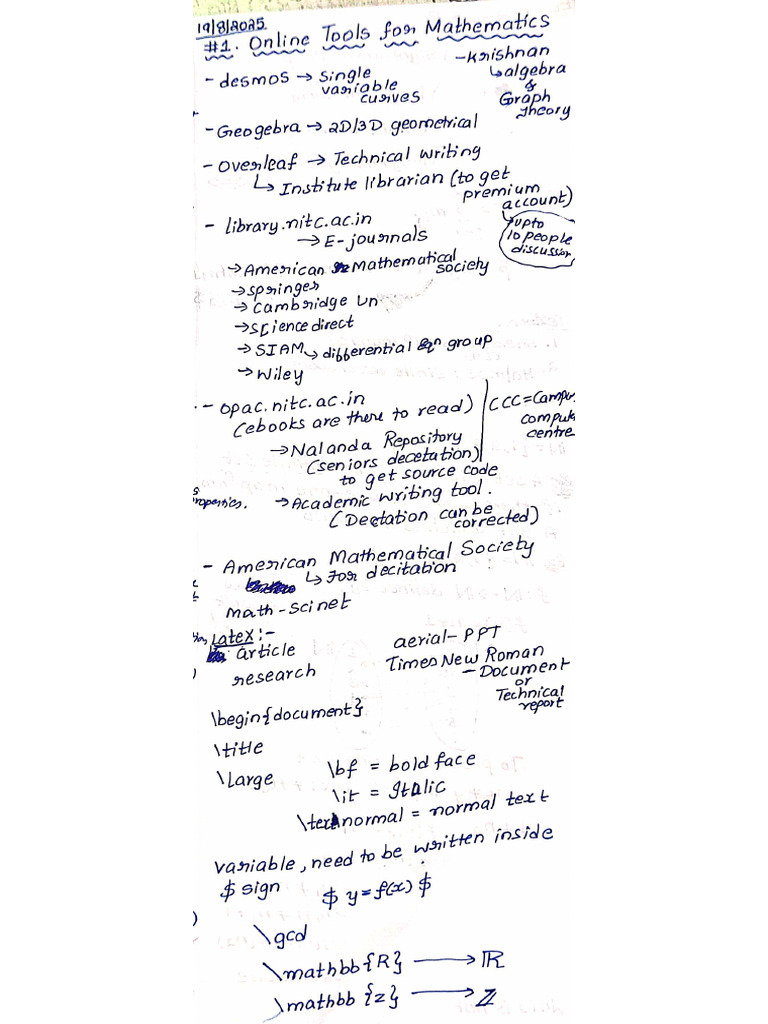 19/8/2025
#1. Online Tools for Mathematics
- desmos → single variable curves
- Krishnan
↳ algebra & Graph Theory
- Geogebra → 2D/3D geometrical
- Overleaf → Technical writing
↳ Institute librarian (to get premium account)
↳ upto 10 people discussion
- library.nitc.ac.in
→ E-journals
→ American Mathematical Society
→ springer
→ Cambridge Un
→ Science direct
→ SIAM ↳ differential Eqn group
→ Wiley
- opac.nitc.ac.in
(ebooks are there to read)
CCC = Campus
comput
centre
→ Nalanda Repository
(seniors decetation)
to get source code
→ Academic writing tool.
(Dectation can be corrected)
- American Mathematical Society
↳ For decitation
math-scinet
Latex :-
article
research
aerial - PPT
Times New Roman
- Document
or
Technical report
\begin{document}
\title
\Large
\bf = bold face
\it = Italic
\textnormal = normal text
variable, need to be written inside
$ sign
$ y = f(x) $
\gcd
\mathbb{R} → ℝ
\mathbb{z} → ℤ